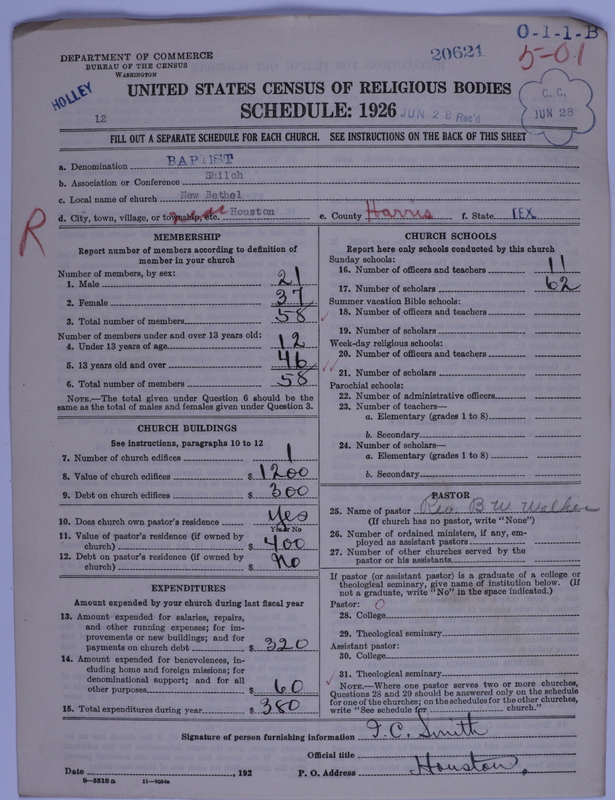 O-1-1-B
20621
5-01
DEPARTMENT OF COMMERCE
BUREAU OF THE CENSUS
WASHINGTON
HOLLEY
12
UNITED STATES CENSUS OF RELIGIOUS BODIES
SCHEDULE: 1926
JUN 28 Rec'd
C. C.
JUN 28
FILL OUT A SEPARATE SCHEDULE FOR EACH CHURCH. SEE INSTRUCTIONS ON THE BACK OF THIS SHEET
a. Denomination BAPTIST
b. Association or Conference Shiloh
c. Local name of church New Bethel
d. City, town, village, or township, etc. Houston e. County Harris f. State TEX
R
MEMBERSHIP
Report number of members according to definition of
member in your church
Number of members, by sex:
1. Male 21
2. Female 37
3. Total number of members 58
Number of members under and over 13 years old:
4. Under 13 years of age 12
5. 13 years old and over 46
6. Total number of members 58
NOTE.—The total given under Question 6 should be
same as the total of males and females given under Question 3.
CHURCH BUILDINGS
See instructions, paragraphs 10 to 12
7. Number of church edifices 1
8. Value of church edifices $ 1200
9. Debt on church edifices $ 300
10. Does church own pastor's residence Yes
Yes or No
11. Value of pastor's residence (if owned by
church) $ 400
12. Debt on pastor's residence (if owned by
church) $ no
EXPENDITURES
Amount expended by your church during last fiscal year
13. Amount expended for salaries, repairs,
and other running expenses; for im-
provements or new buildings; and for
payments on church debt $ 320
14. Amount expended for benevolences, in-
cluding home and foreign missions; for
denominational support; and for all
other purposes $ 60
15. Total expenditures during year $ 380
CHURCH SCHOOLS
Report here only schools conducted by this church
Sunday schools:
16. Number of officers and teachers 11
17. Number of scholars 62
Summer vacation Bible schools:
18. Number of officers and teachers
19. Number of scholars
Week-day religious schools:
20. Number of officers and teachers
21. Number of scholars
Parochial schools:
22. Number of administrative officers
23. Number of teachers—
a. Elementary (grades 1 to 8)
b. Secondary
24. Number of scholars—
a. Elementary (grades 1 to 8)
b. Secondary
PASTOR
25. Name of pastor Rev. B W Walker
(If church has no pastor, write "None")
26. Number of ordained ministers, if any, em-
ployed as assistant pastors
27. Number of other churches served by the
pastor or his assistants
If pastor (or assistant pastor) is a graduate of a college or
theological seminary, give name of institution below. (If
not a graduate, write "No" in the space indicated.)
Pastor: 0
28. College
29. Theological seminary
Assistant pastor:
30. College
31. Theological seminary
NOTE.—Where one pastor serves two or more churches,
Questions 28 and 29 should be answered only on the schedule
for one of the churches; on the schedules for the other churches,
write "See schedule for church."
Signature of person furnishing information F. C. Smith
Official title
Date , 192 P. O. Address Houston,
8-5518 a 11-9034a